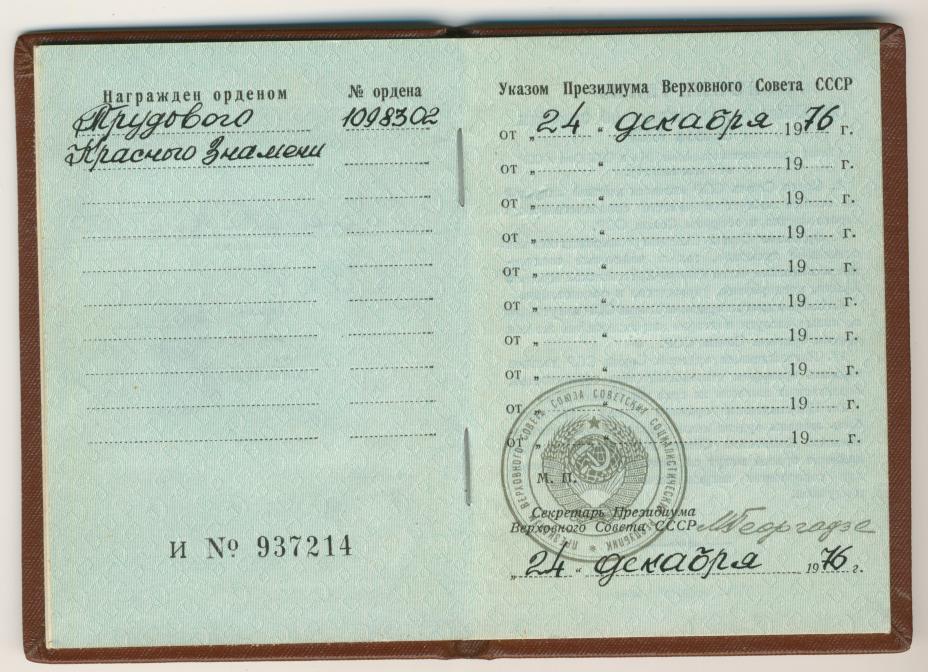 Награжден орденом
№ ордена
Трудового
1098302
Красного Знамени
И № 937214
Указом Президиума Верховного Совета СССР
от „ 24 “ декабря 1976 г.
от „ “ 19 г.
от „ “ 19 г.
от „ “ 19 г.
от „ “ 19 г.
от „ “ 19 г.
от „ “ 19 г.
от „ “ 19 г.
от „ “ 19 г.
от „ “ 19 г.
ПРЕЗИДИУМ ВЕРХОВНОГО СОВЕТА СОЮЗА СОВЕТСКИХ СОЦИАЛИСТИЧЕСКИХ РЕСПУБЛИК
М. П.
Секретарь Президиума
Верховного Совета СССР МГеоргадзе
„ 24 “ декабря 1976 г.